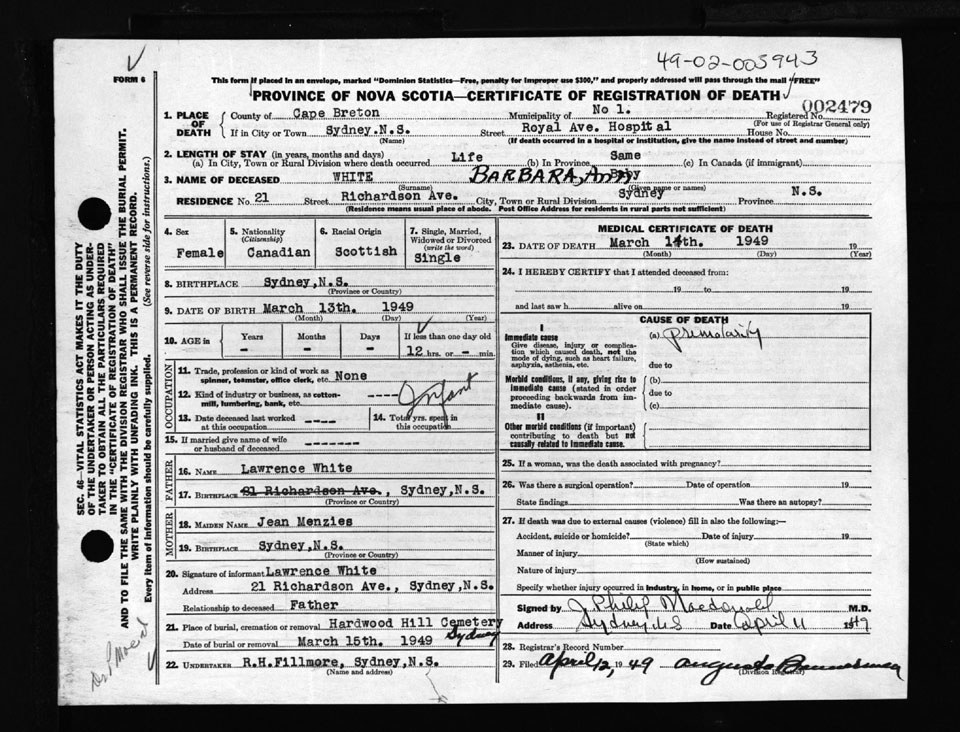 49-02-005943
FORM 6
This form if placed in an envelope, marked "Dominion Statistics—Free, penalty for improper use $300," and properly addressed will pass through the mail "FREE"
PROVINCE OF NOVA SCOTIA—CERTIFICATE OF REGISTRATION OF DEATH
002479
1. PLACE OF DEATH
County of Cape Breton Municipality of No 1. Registered No.
(For use of Registrar General only)
If in City or Town Sydney.N.S. Street Royal Ave. Hospital House No.
(Name) (If death occurred in a hospital or institution, give the name instead of street and number)
2. LENGTH OF STAY (in years, months and days)
(a) In City, Town or Rural Division where death occurred Life (b) In Province Same (c) In Canada (if immigrant)
3. NAME OF DECEASED WHITE BARBARA, Ann Baby
(Surname) (Given name or names)
RESIDENCE No. 21 Street Richardson Ave. City, Town or Rural Division Sydney Province N.S.
(Residence means usual place of abode. Post Office Address for residents in rural parts not sufficient)
4. Sex Female
5. Nationality (Citizenship) Canadian
6. Racial Origin Scottish
7. Single, Married, Widowed or Divorced (write the word) Single
8. BIRTHPLACE Sydney,N.S.
(Province or Country)
9. DATE OF BIRTH March 13th. 1949
(Month) (Day) (Year)
10. AGE in Years Months Days If less than one day old
- - - 12 hrs. or - min.
OCCUPATION
11. Trade, profession or kind of work as spinner, teamster, office clerk, etc. None
12. Kind of industry or business, as cotton-mill, lumbering, bank, etc. ----
Infant
13. Date deceased last worked at this occupation ------
14. Total yrs. spent in this occupation
15. If married give name of wife or husband of deceased -------
FATHER
16. NAME Lawrence White
17. BIRTHPLACE 21 Richardson Ave., Sydney,N.S.
(Province or Country)
MOTHER
18. MAIDEN NAME Jean Menzies
19. BIRTHPLACE Sydney,N.S.
(Province or Country)
20. Signature of informant Lawrence White
Address 21 Richardson Ave., Sydney,N.S.
Relationship to deceased Father
21. Place of burial, cremation or removal Hardwood Hill Cemetery
Sydney
Date of burial or removal March 15th. 1949
22. UNDERTAKER R.H.Fillmore, Sydney,N.S.
(Name and address)
MEDICAL CERTIFICATE OF DEATH
23. DATE OF DEATH March 14th. 1949 19
(Month) (Day) (Year)
24. I HEREBY CERTIFY that I attended deceased from:
19 to 19
and last saw h alive on 19
CAUSE OF DEATH
I
Immediate cause
Give disease, injury or complication which caused death, not the mode of dying, such as heart failure, asphyxia, asthenia, etc.
(a)
due to
Morbid conditions, if any, giving rise to immediate cause (stated in order proceeding backwards from immediate cause).
(b)
due to
(c)
II
Other morbid conditions (if important) contributing to death but not causally related to immediate cause.
25. If a woman, was the death associated with pregnancy?
26. Was there a surgical operation? Date of operation 19
State findings Was there an autopsy?
27. If death was due to external causes (violence) fill in also the following:—
Accident, suicide or homicide? Date of injury 19
(State which)
Manner of injury
(How sustained)
Nature of injury
Specify whether injury occurred in industry, in home, or in public place
Signed by J Philip Macdonald M.D.
Address Sydney NS Date April 11 1949
28. Registrar's Record Number
29. Filed April 12, 1949
(Division Registrar)
SEC. 46—VITAL STATISTICS ACT MAKES IT THE DUTY
OF THE UNDERTAKER OR PERSON ACTING AS UNDER-
TAKER TO OBTAIN ALL THE PARTICULARS REQUIRED
IN THE "CERTIFICATE OF REGISTRATION OF DEATH"
AND TO FILE THE SAME WITH THE DIVISION REGISTRAR WHO SHALL ISSUE THE BURIAL PERMIT.
WRITE PLAINLY WITH UNFADING INK. THIS IS A PERMANENT RECORD.
Every item of information should be carefully supplied. (See reverse side for instructions.)